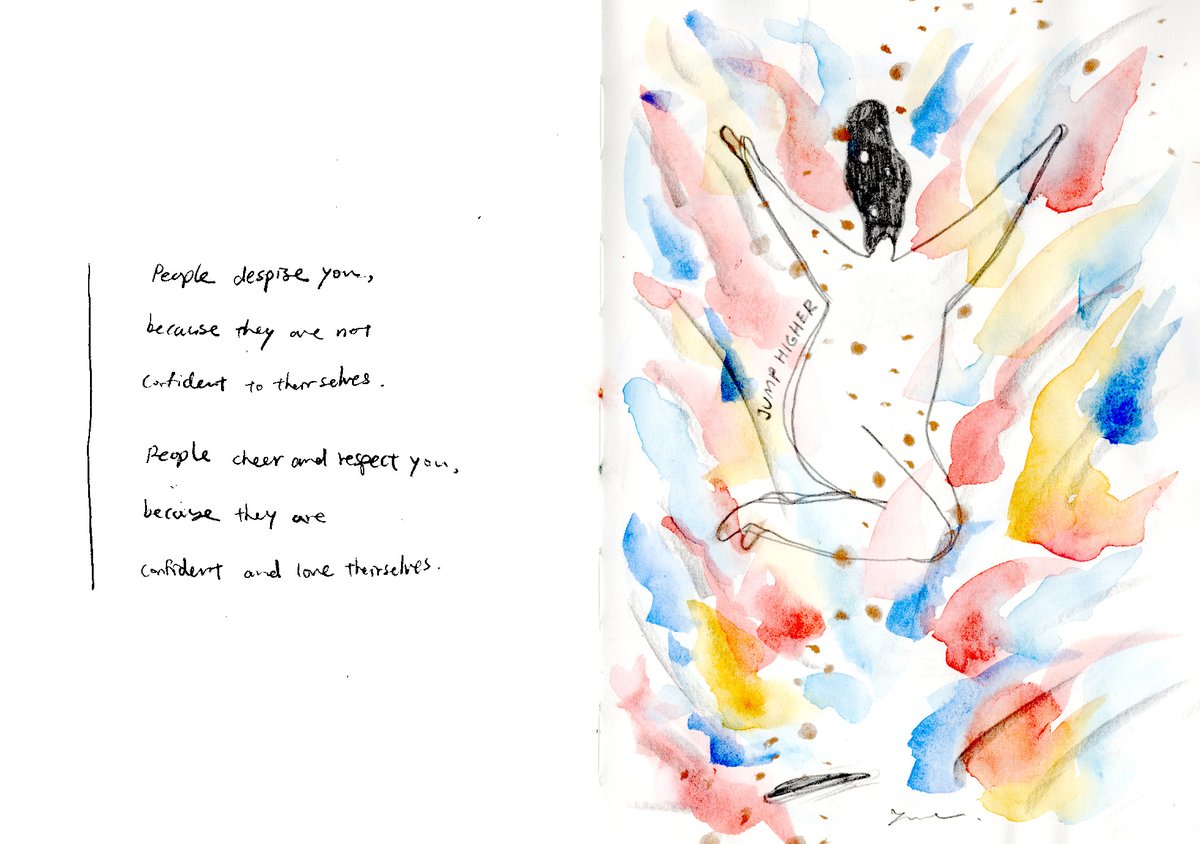 People despise you,
because they are not
confident to theirselves.
People cheer and respect you,
because they are
confident and love theirselves.
JUMP HIGHER